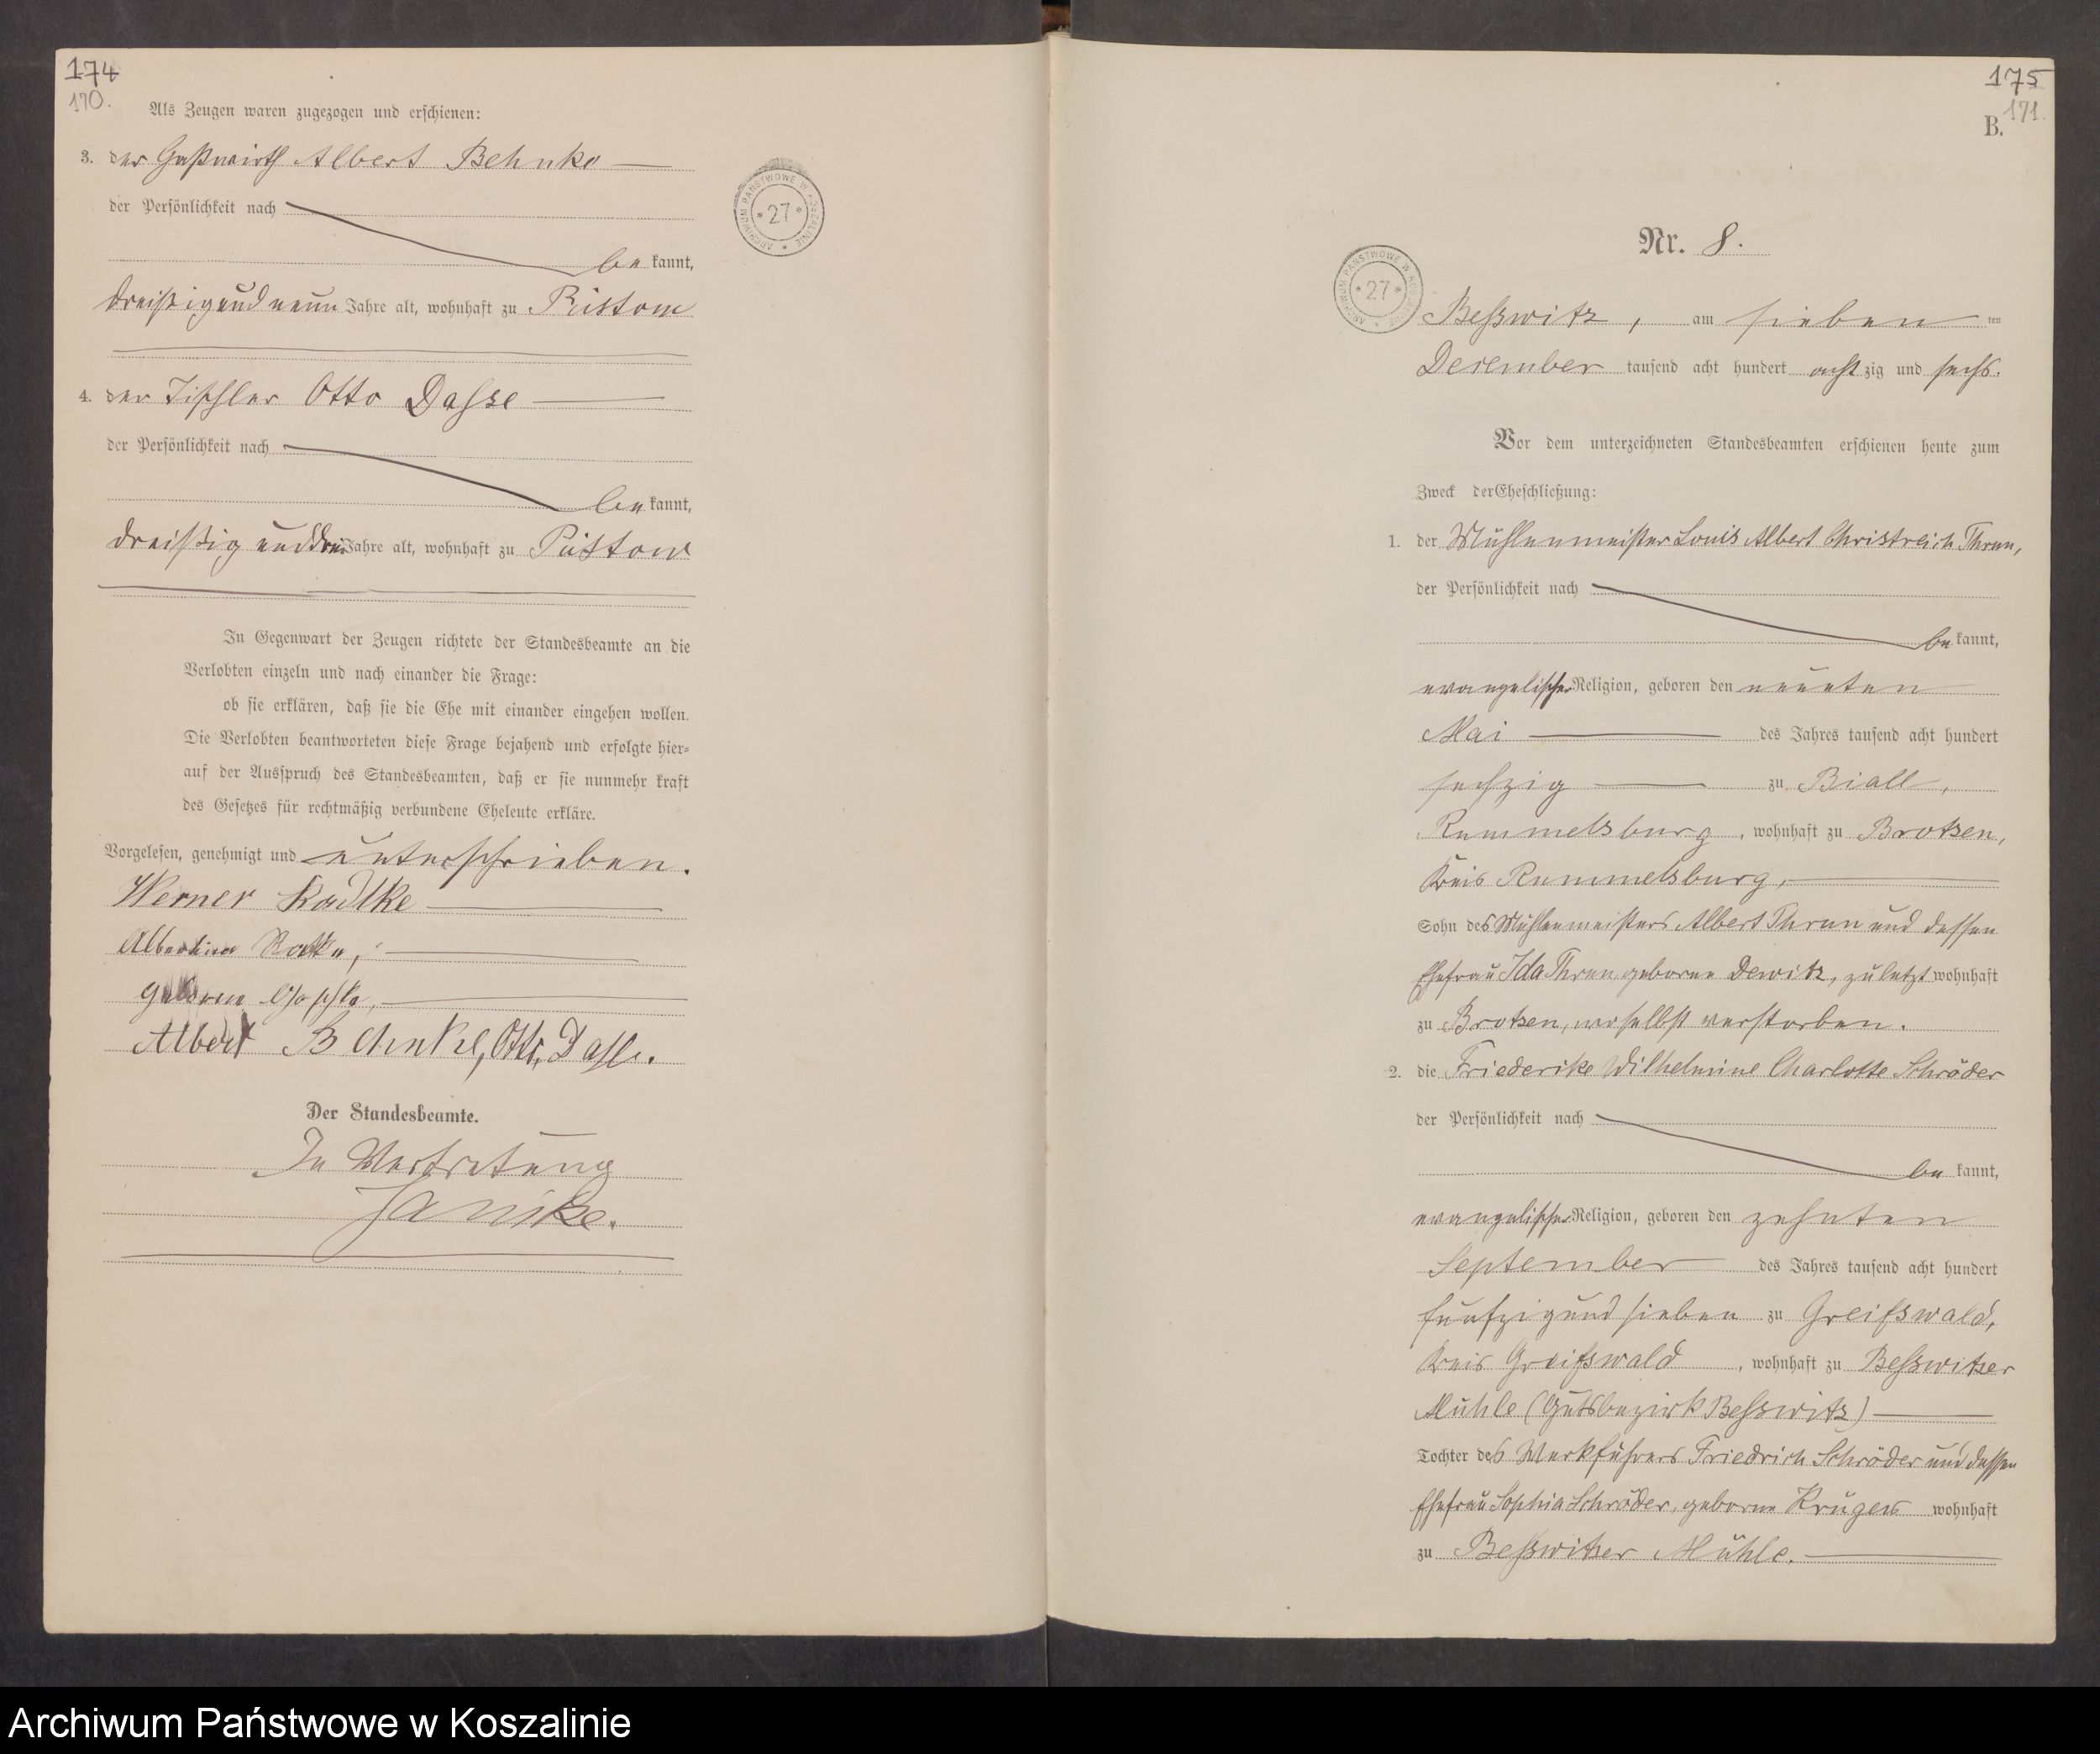 174
170.
Als Zeugen waren zugezogen und erschienen:
3. der Gastwirth Albert Behnke
der Persönlichkeit nach
bekannt,
dreißig und neun Jahre alt, wohnhaft zu Püstow
4. der Tischler Otto Dasse
der Persönlichkeit nach
bekannt,
dreißig und drei Jahre alt, wohnhaft zu Püstow
In Gegenwart der Zeugen richtete der Standesbeamte an die
Verlobten einzeln und nach einander die Frage:
ob sie erklären, daß sie die Ehe mit einander eingehen wollen.
Die Verlobten beantworteten diese Frage bejahend und erfolgte hier-
auf der Ausspruch des Standesbeamten, daß er sie nunmehr kraft
des Gesetzes für rechtmäßig verbundene Eheleute erkläre.
Vorgelesen, genehmigt und unterschrieben.
Werner Radtke
Albertine
geboren
Albert Behnke, Otto Dasse.
Der Standesbeamte.
In Vertretung
Janike.
ARCHIWUM PAŃSTWOWE W KOSZALINIE * 27 *
175
171.
B.
Nr. 8.
ARCHIWUM PAŃSTWOWE W KOSZALINIE * 27 *
Besswitz, am sieben ten
December tausend acht hundert achtzig und sechs.
Vor dem unterzeichneten Standesbeamten erschienen heute zum
Zweck der Eheschließung:
1. der Mühlenmeister Louis Albert Christreich Thrun,
der Persönlichkeit nach
bekannt,
evangelischer Religion, geboren den neunten
Mai des Jahres tausend acht hundert
sechzig zu Biall,
Rummelsburg, wohnhaft zu Brotzen,
Kreis Rummelsburg,
Sohn des Mühlenmeisters Albert Thrun und dessen
Ehefrau Ida Thrun, geborne Dewitz, zuletzt wohnhaft
zu Brotzen, woselbst verstorben.
2. die Friederike Wilhelmine Charlotte Schröder
der Persönlichkeit nach
bekannt,
evangelischer Religion, geboren den zehnten
September des Jahres tausend acht hundert
fünfzig und sieben zu Greifswald,
Kreis Greifswald, wohnhaft zu Besswitzer
Mühle (Gutsbezirk Besswitz)
Tochter des Werkführers Friedrich Schröder und dessen
Ehefrau Sophia Schröder, geborne Krüger wohnhaft
zu Besswitzer Mühle.
Archiwum Państwowe w Koszalinie